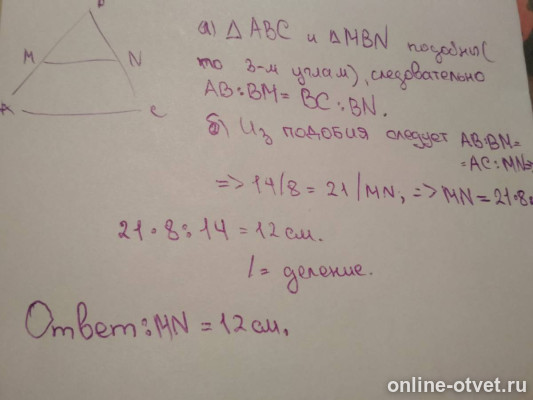 B
M N
A C
а) △ ABC и △MBN подобны (
по 3-м углам), следовательно
AB:BM = BC:BN.
б) Из подобия следует AB:BM=
=AC:MN=>
=> 14/8 = 21/MN, => MN = 21·8:
21·8:14 = 12 см.
/ = деление.
Ответ: MN = 12 см.
online-otvet.ru